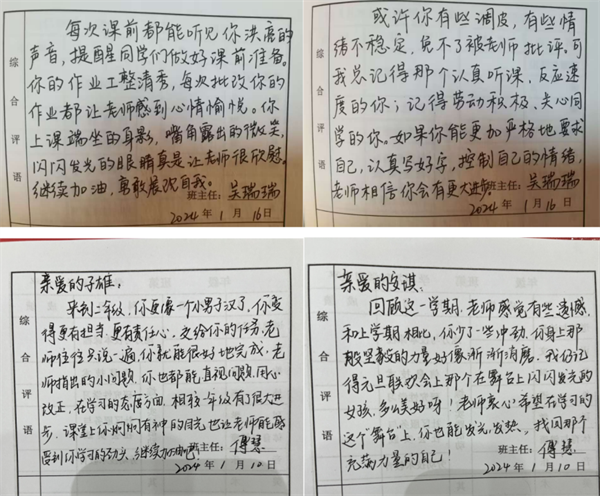 综合评语
每次课前都能听见你洪亮的
声音，提醒同学们做好课前准备。
你的作业工整清秀，每次批改你的
作业都让老师感到心情愉悦。你
上课端坐的身影，嘴角露出的微笑，
闪闪发光的眼睛真是让老师很欣慰。
继续加油，勇敢展现自我。
班主任：吴瑞瑞
2024年1月16日
综合评语
或许你有些调皮，有些情
绪不稳定，免不了被老师批评。可
我总记得那个认真听课，反应速
度的你；记得劳动积极，关心同
学的你。如果你能更加严格地要求
自己，认真写好字，控制自己的情绪，
老师相信你会有更大进步。
班主任：吴瑞瑞
2024年1月16日
综合评语
亲爱的子雄：
来到二年级，你更像一个小男子汉了，你变
得更有担当，更有责任心，交给你的任务，老
师往往只说一遍，你就能很好地完成，老
师指出的小问题，你也都能直视问题，用心
改正，在学习的态度方面，相较一年级有了很大进
步，课堂上你炯炯有神的目光也让老师能感
受到你学习的劲头，继续加油吧！
班主任：傅慧
2024年1月10日
综合评语
亲爱的安琪：
回顾这一学期，老师感觉有些遗憾，
和上学期相比，你少了一些冲动，你身上那
股坚毅的力量好像渐渐消磨，我仍记
得元旦联欢会上那个在舞台上闪闪发光的
女孩，多么美好呀！老师衷心希望在学习的
这个“舞台”上，你也能发光发热，找回那个
充满力量的自己！
班主任：傅慧
2024年1月10日